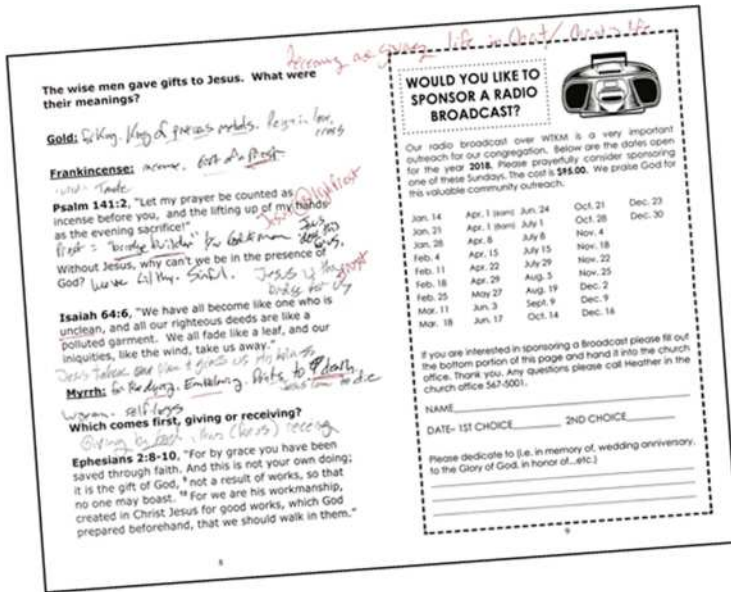 The wise men gave gifts to Jesus. What were
their meanings?
Gold: King of precious metals.
Frankincense: incense.
Psalm 141:2, "Let my prayer be counted as
incense before you, and the lifting up of my hands
as the evening sacrifice!"
Priest = "bridge builder"
Without Jesus, why can't we be in the presence of
God? Sinful.
Jesus is the
bridge for us
Isaiah 64:6, "We have all become like one who is
unclean, and all our righteous deeds are like a
polluted garment. We all fade like a leaf, and our
iniquities, like the wind, take us away."
Myrrh: for the dying. Embalming. Points to death.
Which comes first, giving or receiving?
Ephesians 2:8-10, "For by grace you have been
saved through faith. And this is not your own doing;
it is the gift of God, 9 not a result of works, so that
no one may boast. 10 For we are his workmanship,
created in Christ Jesus for good works, which God
prepared beforehand, that we should walk in them."
8
life in Christ/
WOULD YOU LIKE TO
SPONSOR A RADIO
BROADCAST?
Our radio broadcast over WTKM is a very important
outreach for our congregation. Below are the dates open
for the year 2018. Please prayerfully consider sponsoring
one of these Sundays. The cost is $95.00. We praise God for
this valuable community outreach.
Jan. 14 Apr. 1 Jun. 24 Oct. 21 Dec. 23
Jan. 21 Apr. 1 July 1 Oct. 28 Dec. 30
Jan. 28 Apr. 8 July 8 Nov. 4
Feb. 4 Apr. 15 July 15 Nov. 18
Feb. 11 Apr. 22 July 29 Nov. 22
Feb. 18 Apr. 29 Aug. 5 Nov. 25
Feb. 25 May 27 Aug. 19 Dec. 2
Mar. 11 Jun. 3 Sept. 9 Dec. 9
Mar. 18 Jun. 17 Oct. 14 Dec. 16
If you are interested in sponsoring a Broadcast please fill out
the bottom portion of this page and hand it into the church
office. Thank you. Any questions please call Heather in the
church office 567-5001.
NAME
DATE- 1ST CHOICE 2ND CHOICE
Please dedicate to (i.e. in memory of, wedding anniversary,
to the Glory of God, in honor of...etc.)
9